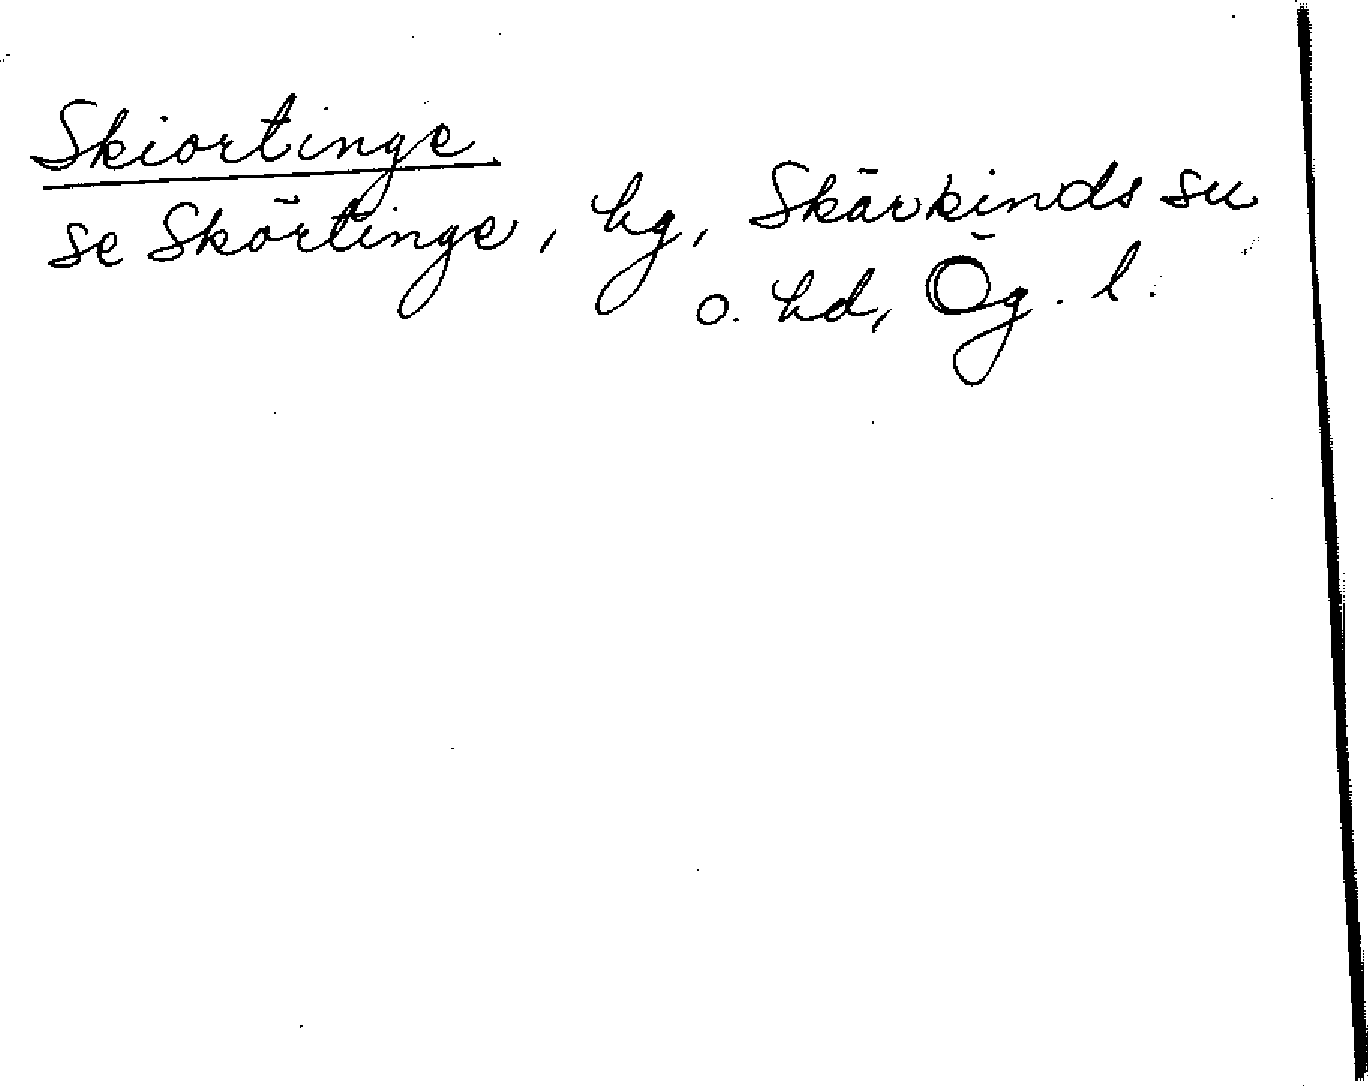 Skiortinge
se Skörtinge, hg, Skärkinds sn
o. hd, Ög. l.